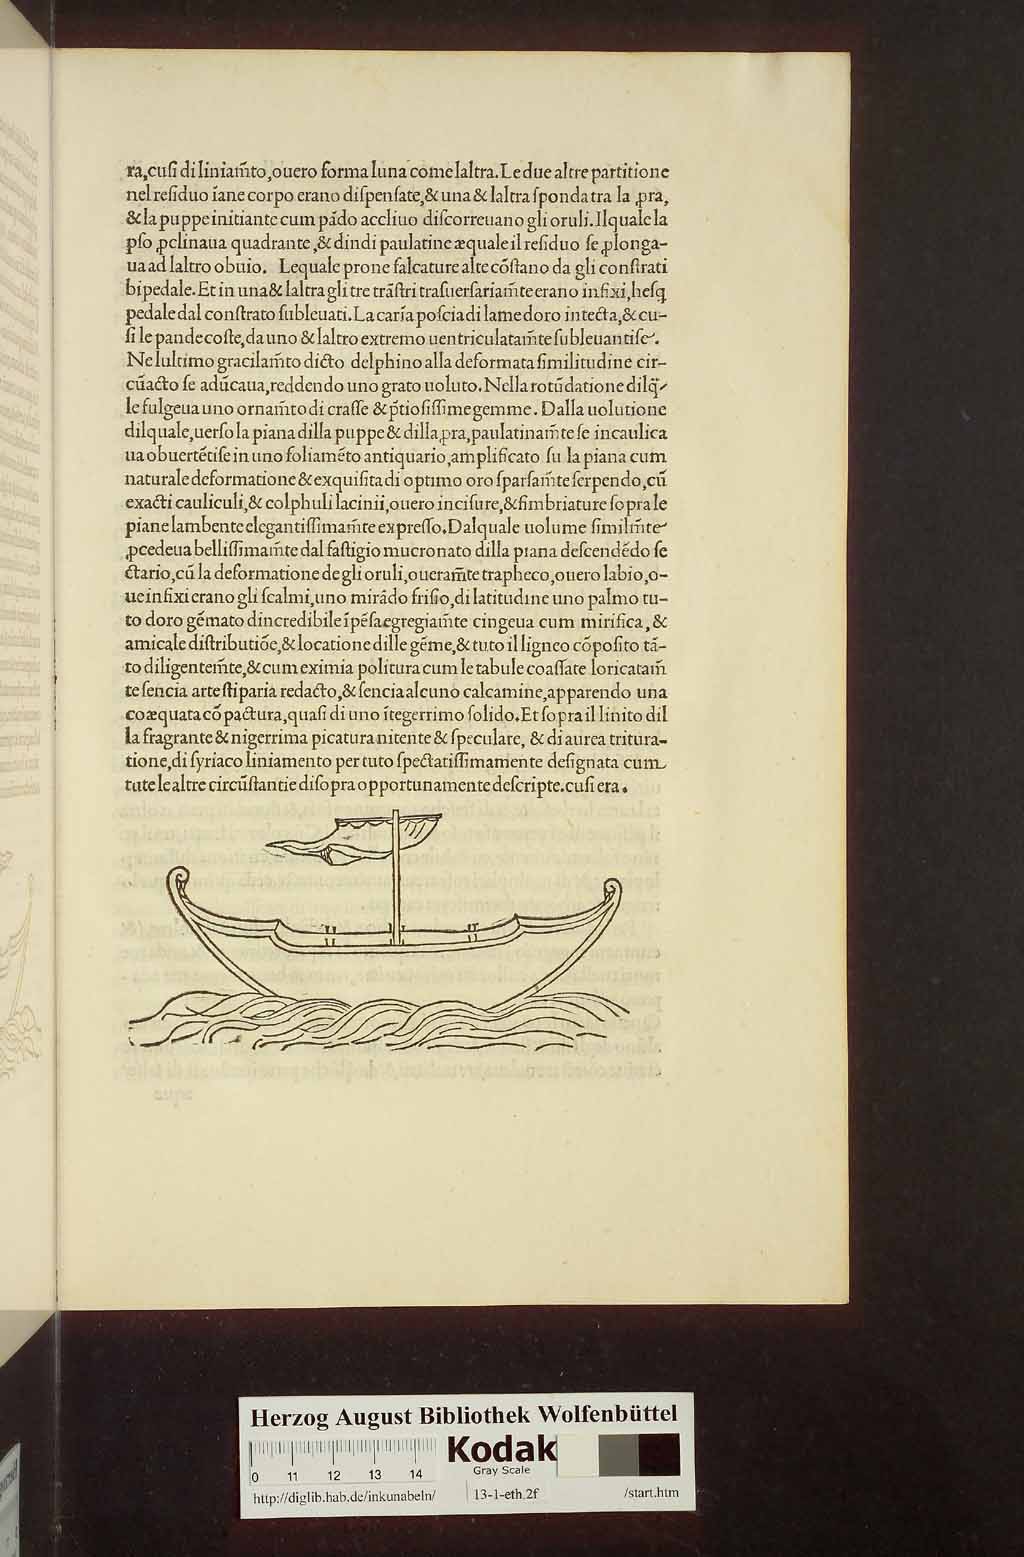 ra,cuſi di liniam̃to,ouero forma luna come laltra. Le due altre partitione
nel reſiduo ĩane corpo erano diſpenſate,& una & laltra ſponda tra la ꝓra,
& la puppe initiante cum pãdo accliuo diſcorreuano gli oruli. Il quale la
pſo ꝓclinaua quadrante,& dindi paulatine æquale il reſiduo ſe ꝓlonga-
ua ad laltro obuio. Lequale prone falcature alte cõſtano da gli conſtrati
bipedale. Et in una & laltra gli tre trãſtri traſuerſariam̃te erano infixi,heſq
pedale dal conſtrato ſubleuati. La carĩa poſcia di lame doro intecta,& cu-
ſi le pande coſte,da uno & laltro extremo uentriculatam̃te ſubleuantiſe.
Ne lultimo gracilam̃to dicto delphino alla deformata ſimilitudine cir-
cũacto ſe adũcaua,reddendo uno grato uoluto. Nella rotũdatione dilq̃-
le fulgeua uno ornam̃to di craſſe & p̃tioſiſſime gemme. Dalla uolutione
dilquale,uerſo la piana dilla puppe & dilla ꝓra,paulatinam̃te ſe incaulica
ua obuertẽtiſe in uno foliamẽto antiquario,amplificato ſu la piana cum
naturale deformatione & exquiſita di optimo oro ſparſam̃te ſerpendo,cũ
exacti cauliculi,& colphuli lacinii,ouero inciſure,& fimbriature ſopra le
piane lambente elegantiſſimam̃te expreſſo. Dalquale uolume ſimilm̃te
ꝓcedeua belliſſimam̃te dal faſtigio mucronato dilla piana deſcendẽdo ſe
ctario,cũ la deformatione de gli oruli,oueram̃te trapheco,ouero labio,o-
ue infixi erano gli ſcalmi,uno mirãdo friſio,di latitudine uno palmo tu-
to doro gẽmato dincredibile ĩpẽſa egregiam̃te cingeua cum mirifica,&
amicale diſtributiõe,& locatione dille gẽme,& tuto il ligneo cõpoſito tã-
to diligentem̃te,& cum eximia politura cum le tabule coaſſate loricatam̃
te ſencia arte ſtiparia redacto,& ſencia alcuno calcamine,apparendo una
coæquata cõpactura,quaſi di uno ĩtegerrimo ſolido. Et ſopra il linito dil
la fragrante & nigerrima picatura nitente & ſpeculare, & di aurea tritura-
tione,di ſyriaco liniamento per tuto ſpectatiſſimamente deſignata cum
tute le altre circũſtantie diſopra opportunamente deſcripte.cuſi era.
Herzog August Bibliothek Wolfenbüttel
Kodak
Gray Scale
0 11 12 13 14
http://diglib.hab.de/inkunabeln/ 13-1-eth.2f /start.htm